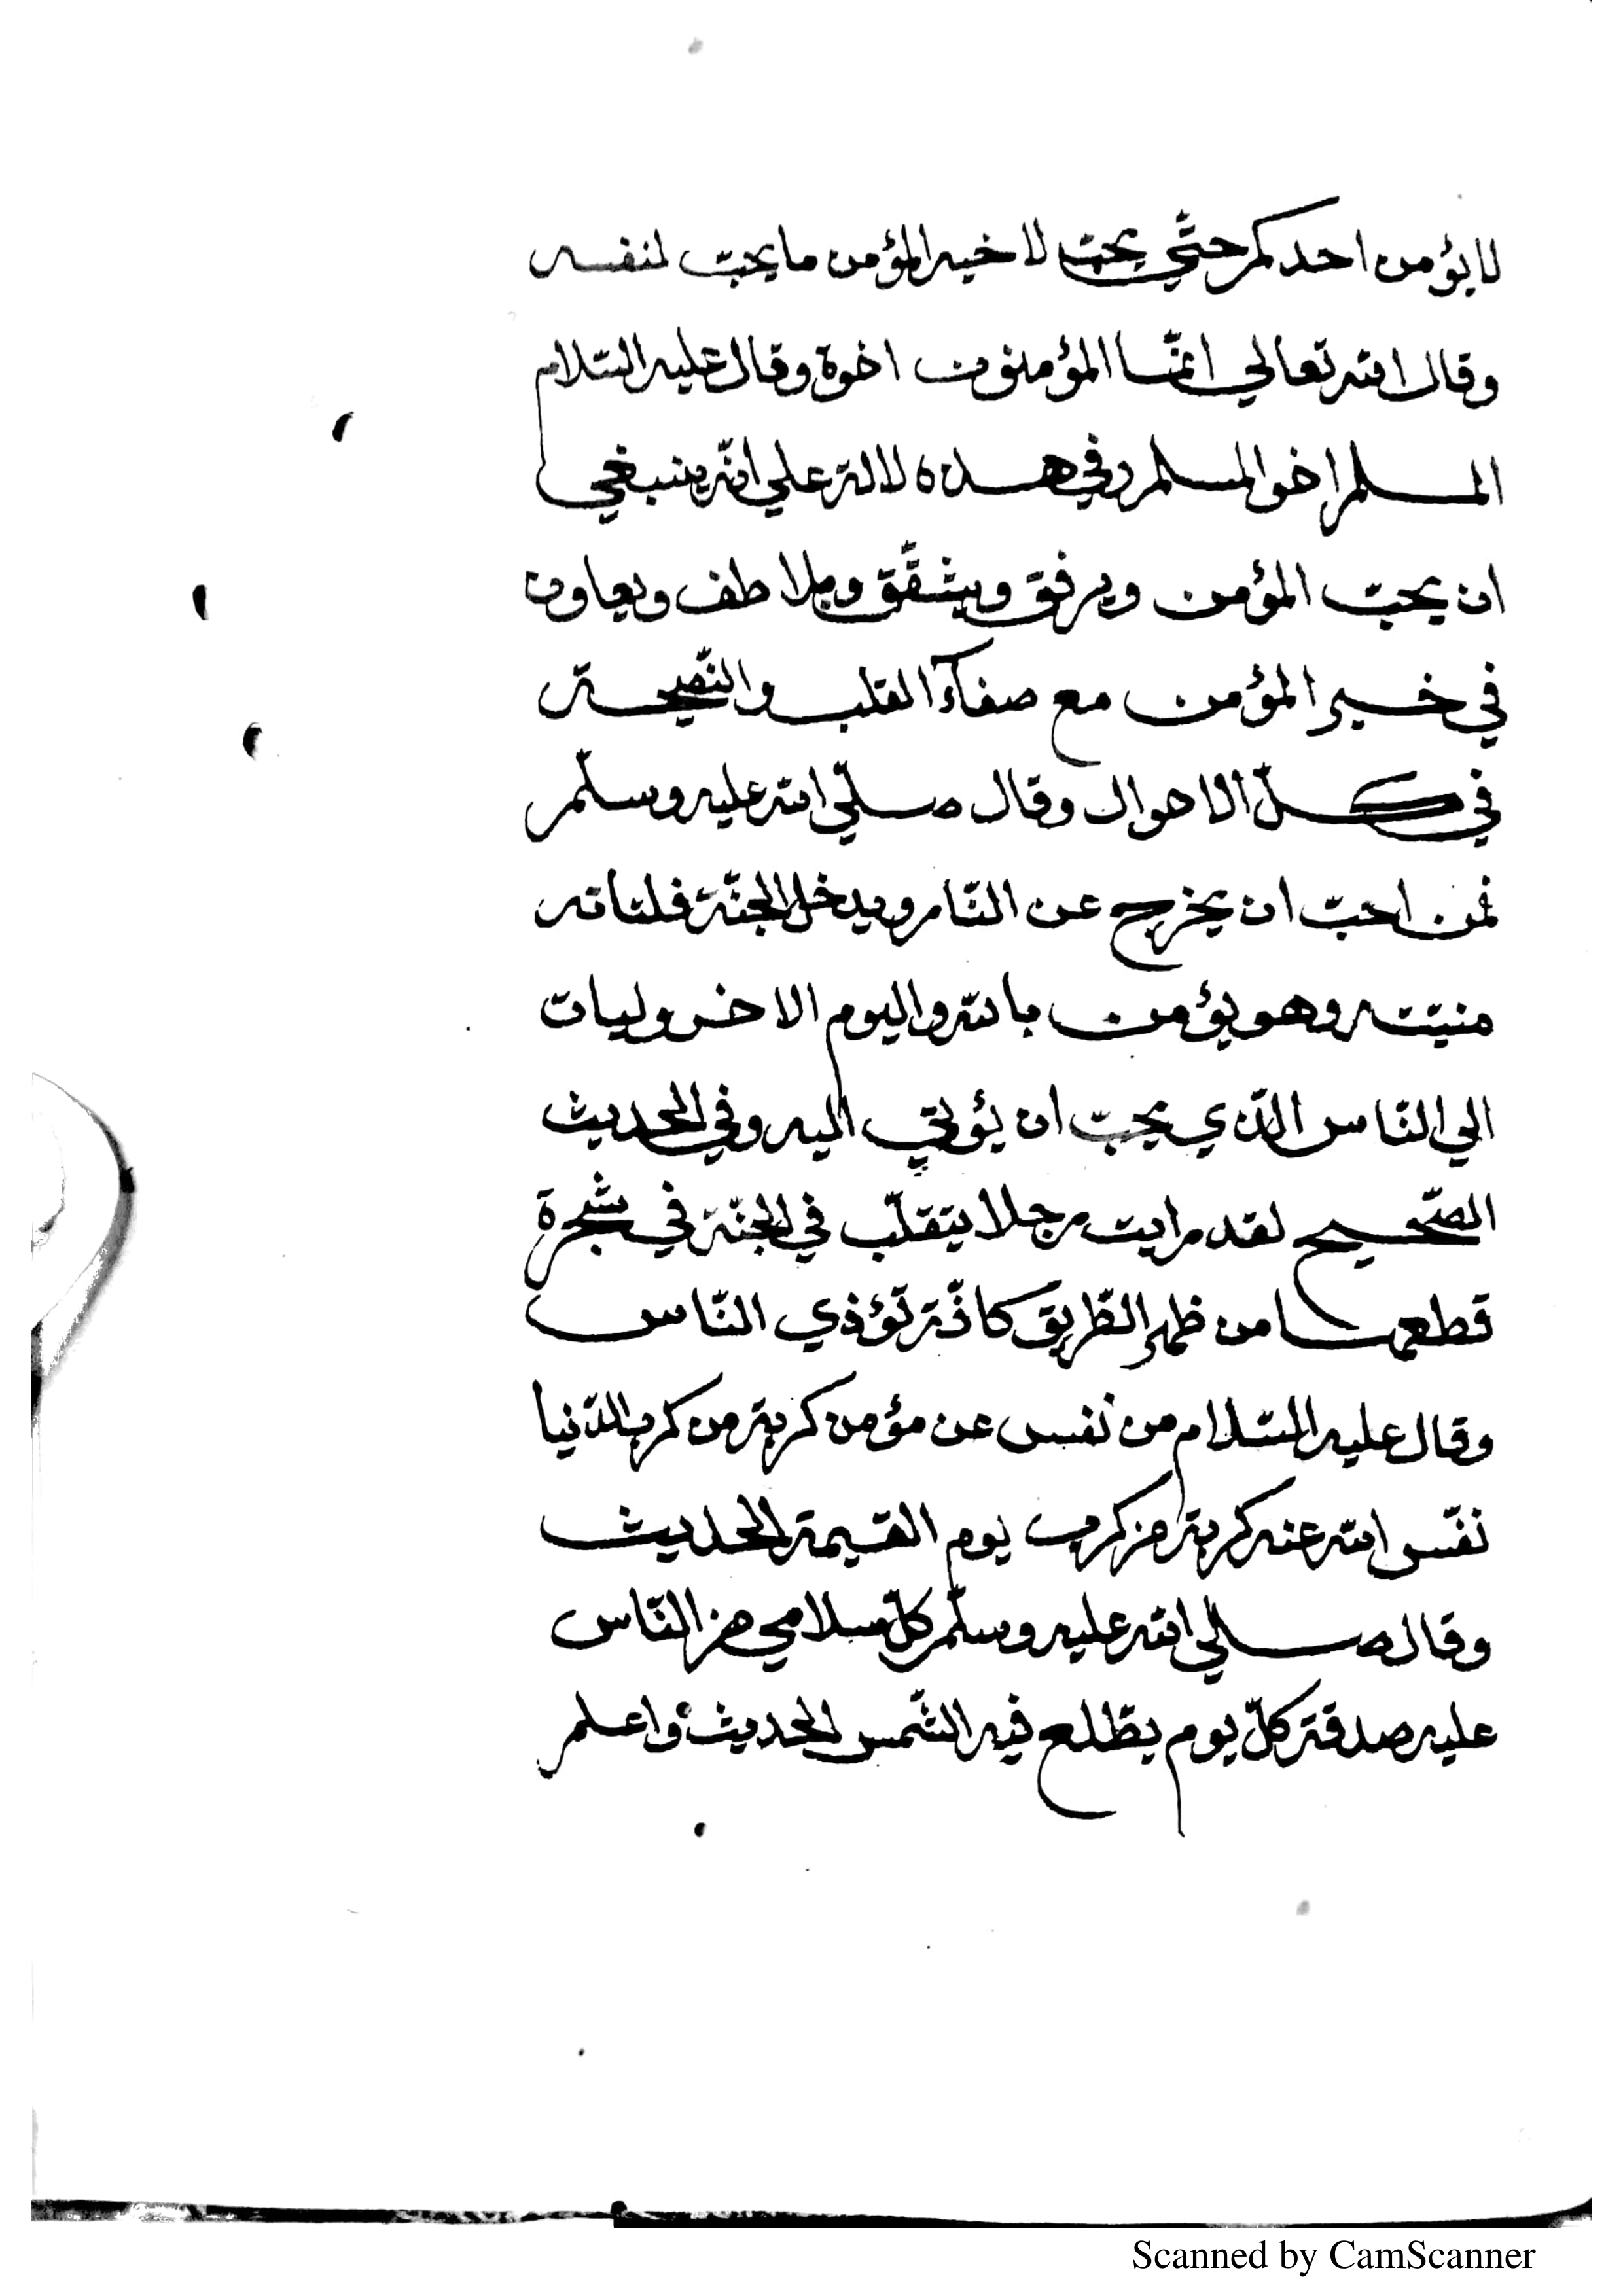 لا يؤمن احدكم حتّي يحبّ لاخيه المؤمن ما يحبّ لنفسه
وقال الله تعالي انّما المؤمنون اخوة وقال عليه السّلام
المسلم اخو المسلم وفي هذه دلالة علي انّه ينبغي
ان يحبّ المؤمن ويرفق ويشقّق ويلاطف ويعاون
في خير المؤمن مع صفآء القلب والنّصيحة
في كلّ الاحوال وقال صلّي الله عليه وسلّم
فمن احبّ ان يخرج عن النّار ويدخل الجنّة فلتاته
منيّته وهو يؤمن بالله واليوم الاخر وليات
الي النّاس الّذي يحبّ ان يؤتي اليه وفي الحديث
الصّحيح لقد رايت رجلا يتقلّب في الجنّة في شجرة
قطعها من ظهر الطّريق كانّة تؤذي النّاس
وقال عليه السّلام من نفس عن مؤمن كربة من كرب الدّنيا
نفّس الله عنه كربة من كرب يوم القيمة الحديث
وقال صلي الله عليه وسلّم كلّ سلامي من النّاس
عليه صدقة كلّ يوم يطّلع فيه الشّمس الحديث واعلم
Scanned by CamScanner